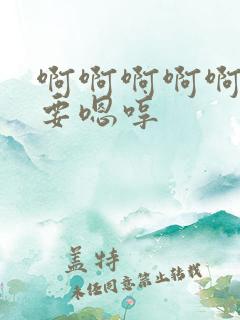 啊啊啊啊啊
要嗯哼
盖特
未经同意禁止转载